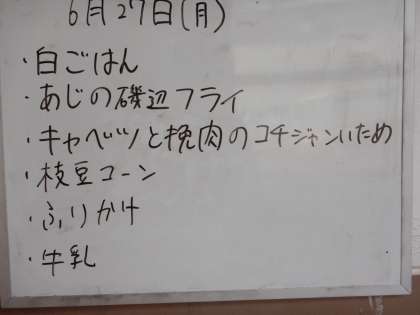 6月27日(月)
・白ごはん
・あじの磯辺フライ
・キャベツと挽肉のコチジャンいため
・枝豆コーン
・ふりかけ
・牛乳